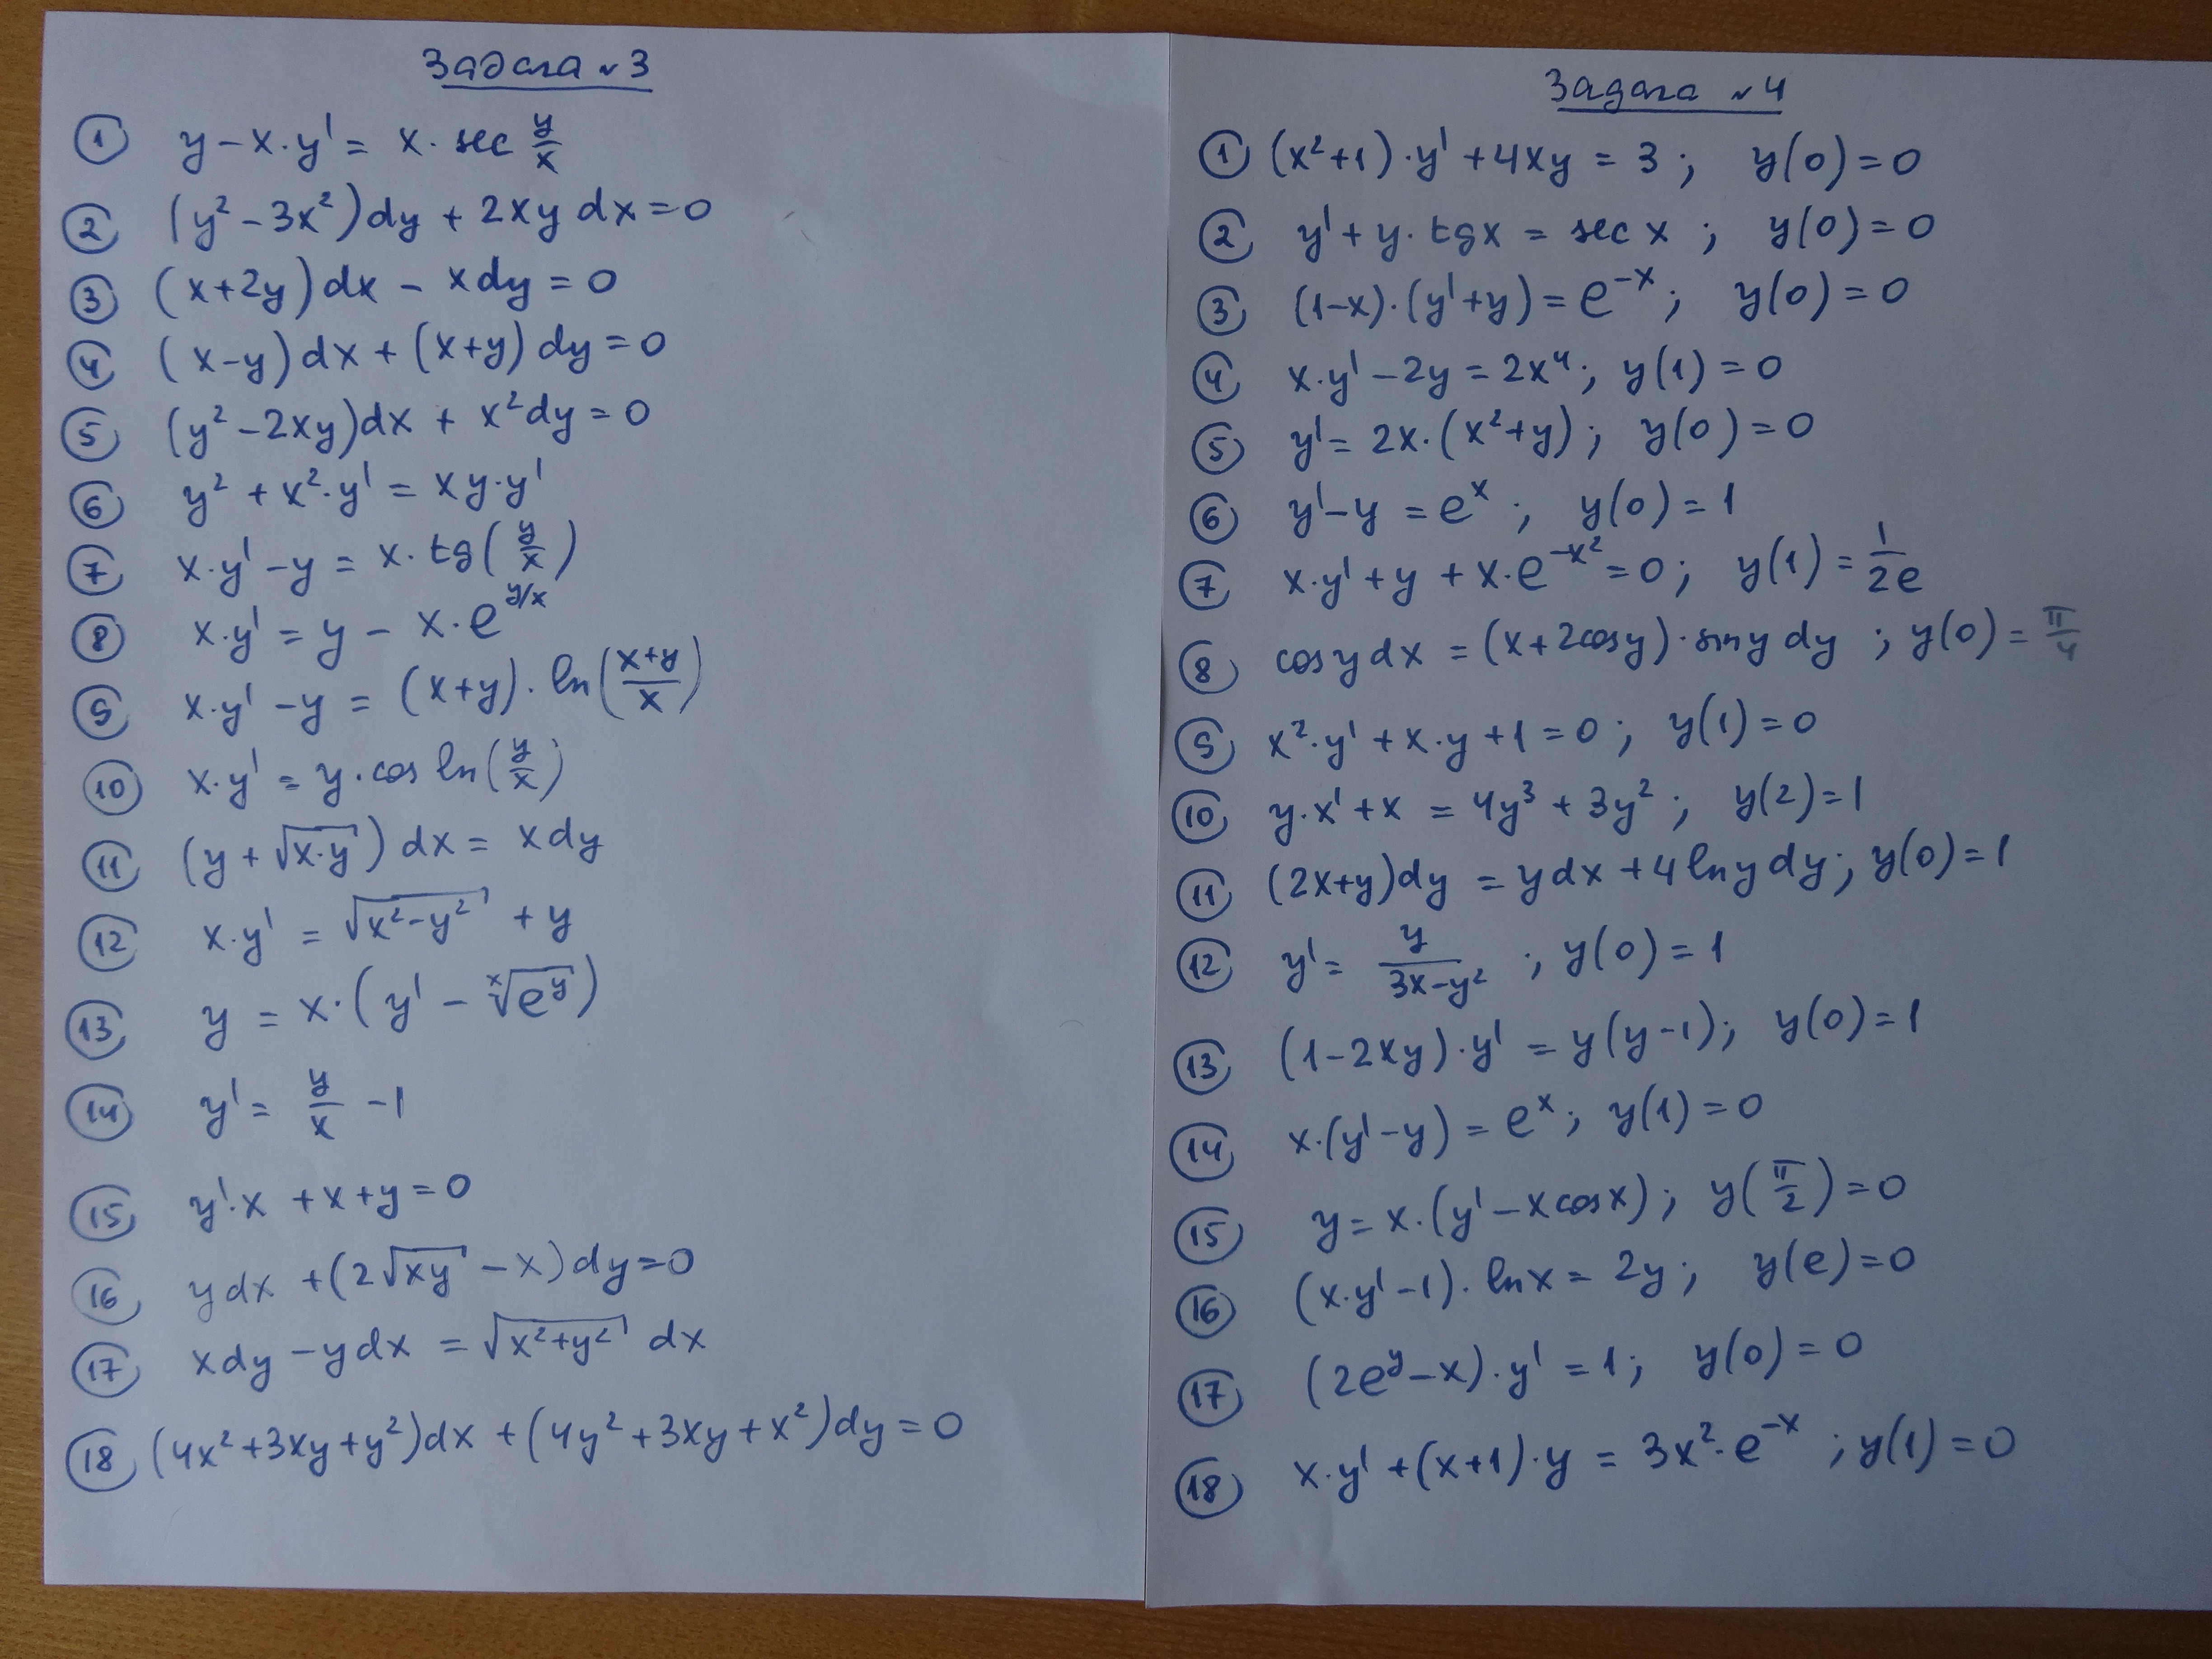 Задача №3
① y - x·y' = x·sec y/x
② (y² - 3x²)dy + 2xy dx = 0
③ (x+2y)dx - xdy = 0
④ (x-y)dx + (x+y)dy = 0
⑤ (y² - 2xy)dx + x²dy = 0
⑥ y² + x²·y' = xy·y'
⑦ x·y' - y = x·tg(y/x)
⑧ x·y' = y - x·e^(y/x)
⑨ x·y' - y = (x+y)·ln((x+y)/x)
⑩ x·y' = y·cos ln(y/x)
⑪ (y + √(x·y))dx = xdy
⑫ x·y' = √(x²-y²) + y
⑬ y = x·(y' - ˣ√(e^y))
⑭ y' = y/x - 1
⑮ y'·x + x + y = 0
⑯ ydx + (2√(xy) - x)dy = 0
⑰ xdy - ydx = √(x²+y²) dx
⑱ (4x²+3xy+y²)dx + (4y²+3xy+x²)dy = 0
Задача №4
① (x²+1)·y' + 4xy = 3; y(0) = 0
② y' + y·tgx = sec x; y(0) = 0
③ (1-x)·(y'+y) = e^(-x); y(0) = 0
④ x·y' - 2y = 2x⁴; y(1) = 0
⑤ y' = 2x·(x²+y); y(0) = 0
⑥ y' - y = e^x; y(0) = 1
⑦ x·y' + y + x·e^(-x²) = 0; y(1) = 1/2e
⑧ cosydx = (x+2cosy)·siny dy; y(0) = π/4
⑨ x²·y' + x·y + 1 = 0; y(1) = 0
⑩ y·x' + x = 4y³ + 3y²; y(2) = 1
⑪ (2x+y)dy = ydx + 4lnydy; y(0) = 1
⑫ y' = y/(3x-y²); y(0) = 1
⑬ (1-2xy)·y' = y(y-1); y(0) = 1
⑭ x·(y'-y) = e^x; y(1) = 0
⑮ y = x·(y' - xcosx); y(π/2) = 0
⑯ (x·y' - 1)·lnx = 2y; y(e) = 0
⑰ (2e^y - x)·y' = 1; y(0) = 0
⑱ x·y' + (x+1)·y = 3x²·e^(-x); y(1) = 0